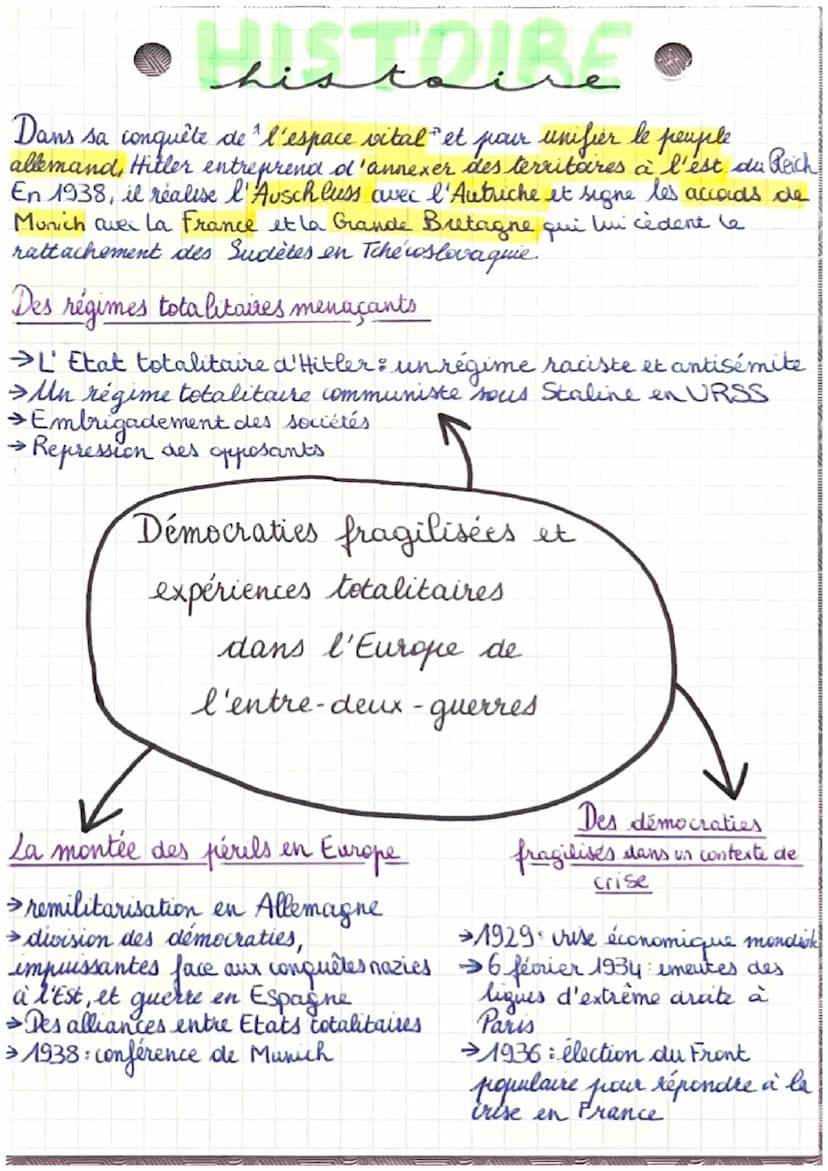 HISTOIRE
histoire
Dans sa conquête de "l'espace vital" et pour unifier le peuple
allemand, Hitler entreprend d'annexer des territoires à l'est du Reich
En 1938, il réalise l'Auschluss avec l'Autriche et signe les accords de
Munich avec la France et la Grande Bretagne qui lui cèdent le
rattachement des Sudètes en Tchécoslovaquie.
Des régimes totalitaires menaçants
→ L'Etat totalitaire d'Hitler : un régime raciste et antisémite
→ Un régime totalitaire communiste sous Staline en URSS
→ Embrigadement des sociétés
→ Repression des opposants
Démocraties fragilisées et
expériences totalitaires
dans l'Europe de
l'entre-deux-guerres
La montée des périls en Europe
→ remilitarisation en Allemagne
→ division des démocraties,
impuissantes face aux conquêtes nazies
à l'Est, et guerre en Espagne
→ Des alliances entre Etats totalitaires
→ 1938 : conférence de Munich
Des démocraties
fragilisés dans un contexte de
crise
→ 1929 : crise économique mondiale
→ 6 février 1934 : émeutes des
ligues d'extrême droite à
Paris
→ 1936 : élection du Front
populaire pour répondre à la
crise en France